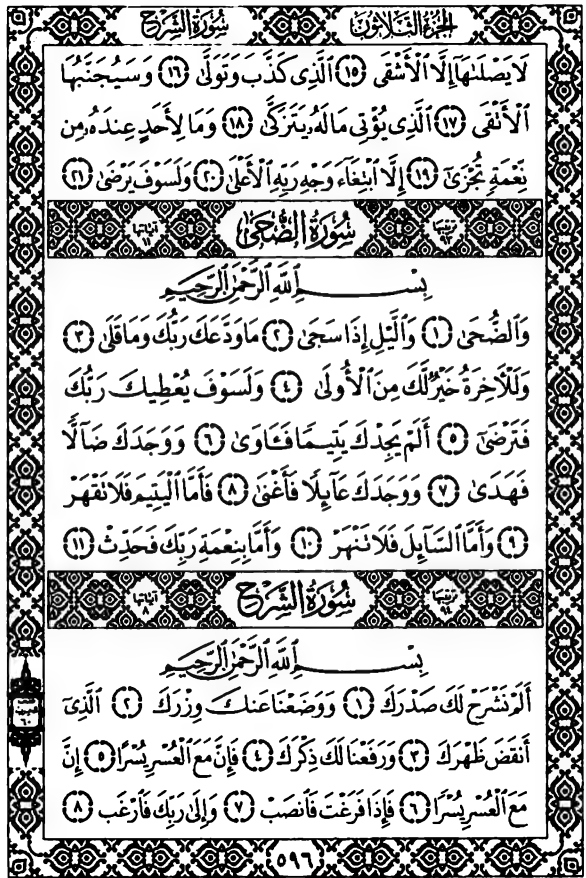 الجزء الثلاثون
سورة الشرح
لَا يَصْلَىٰهَآ إِلَّا ٱلْأَشْقَى ١٥ ٱلَّذِى كَذَّبَ وَتَوَلَّىٰ ١٦ وَسَيُجَنَّبُهَا
ٱلْأَتْقَى ١٧ ٱلَّذِى يُؤْتِى مَالَهُۥ يَتَزَكَّىٰ ١٨ وَمَا لِأَحَدٍ عِندَهُۥ مِن
نِّعْمَةٍ تُجْزَىٰٓ ١٩ إِلَّا ٱبْتِغَآءَ وَجْهِ رَبِّهِ ٱلْأَعْلَىٰ ٢٠ وَلَسَوْفَ يَرْضَىٰ ٢١
ترتيبها ٩٣ سُورَةُ الضُّحَىٰ آياتها ١١
بِسْمِ ٱللَّهِ ٱلرَّحْمَٰنِ ٱلرَّحِيمِ
وَٱلضُّحَىٰ ١ وَٱلَّيْلِ إِذَا سَجَىٰ ٢ مَا وَدَّعَكَ رَبُّكَ وَمَا قَلَىٰ ٣
وَلَلْءَاخِرَةُ خَيْرٌ لَّكَ مِنَ ٱلْأُولَىٰ ٤ وَلَسَوْفَ يُعْطِيكَ رَبُّكَ
فَتَرْضَىٰٓ ٥ أَلَمْ يَجِدْكَ يَتِيمًا فَـَٔاوَىٰ ٦ وَوَجَدَكَ ضَآلًّا
فَهَدَىٰ ٧ وَوَجَدَكَ عَآئِلًا فَأَغْنَىٰ ٨ فَأَمَّا ٱلْيَتِيمَ فَلَا تَقْهَرْ
٩ وَأَمَّا ٱلسَّآئِلَ فَلَا تَنْهَرْ ١٠ وَأَمَّا بِنِعْمَةِ رَبِّكَ فَحَدِّثْ ١١
ترتيبها ٩٤ سُورَةُ الشَّرْحِ آياتها ٨
بِسْمِ ٱللَّهِ ٱلرَّحْمَٰنِ ٱلرَّحِيمِ
أَلَمْ نَشْرَحْ لَكَ صَدْرَكَ ١ وَوَضَعْنَا عَنكَ وِزْرَكَ ٢ ٱلَّذِىٓ
أَنقَضَ ظَهْرَكَ ٣ وَرَفَعْنَا لَكَ ذِكْرَكَ ٤ فَإِنَّ مَعَ ٱلْعُسْرِ يُسْرًا ٥ إِنَّ
مَعَ ٱلْعُسْرِ يُسْرًا ٦ فَإِذَا فَرَغْتَ فَٱنصَبْ ٧ وَإِلَىٰ رَبِّكَ فَٱرْغَب ٨
٥٩٦